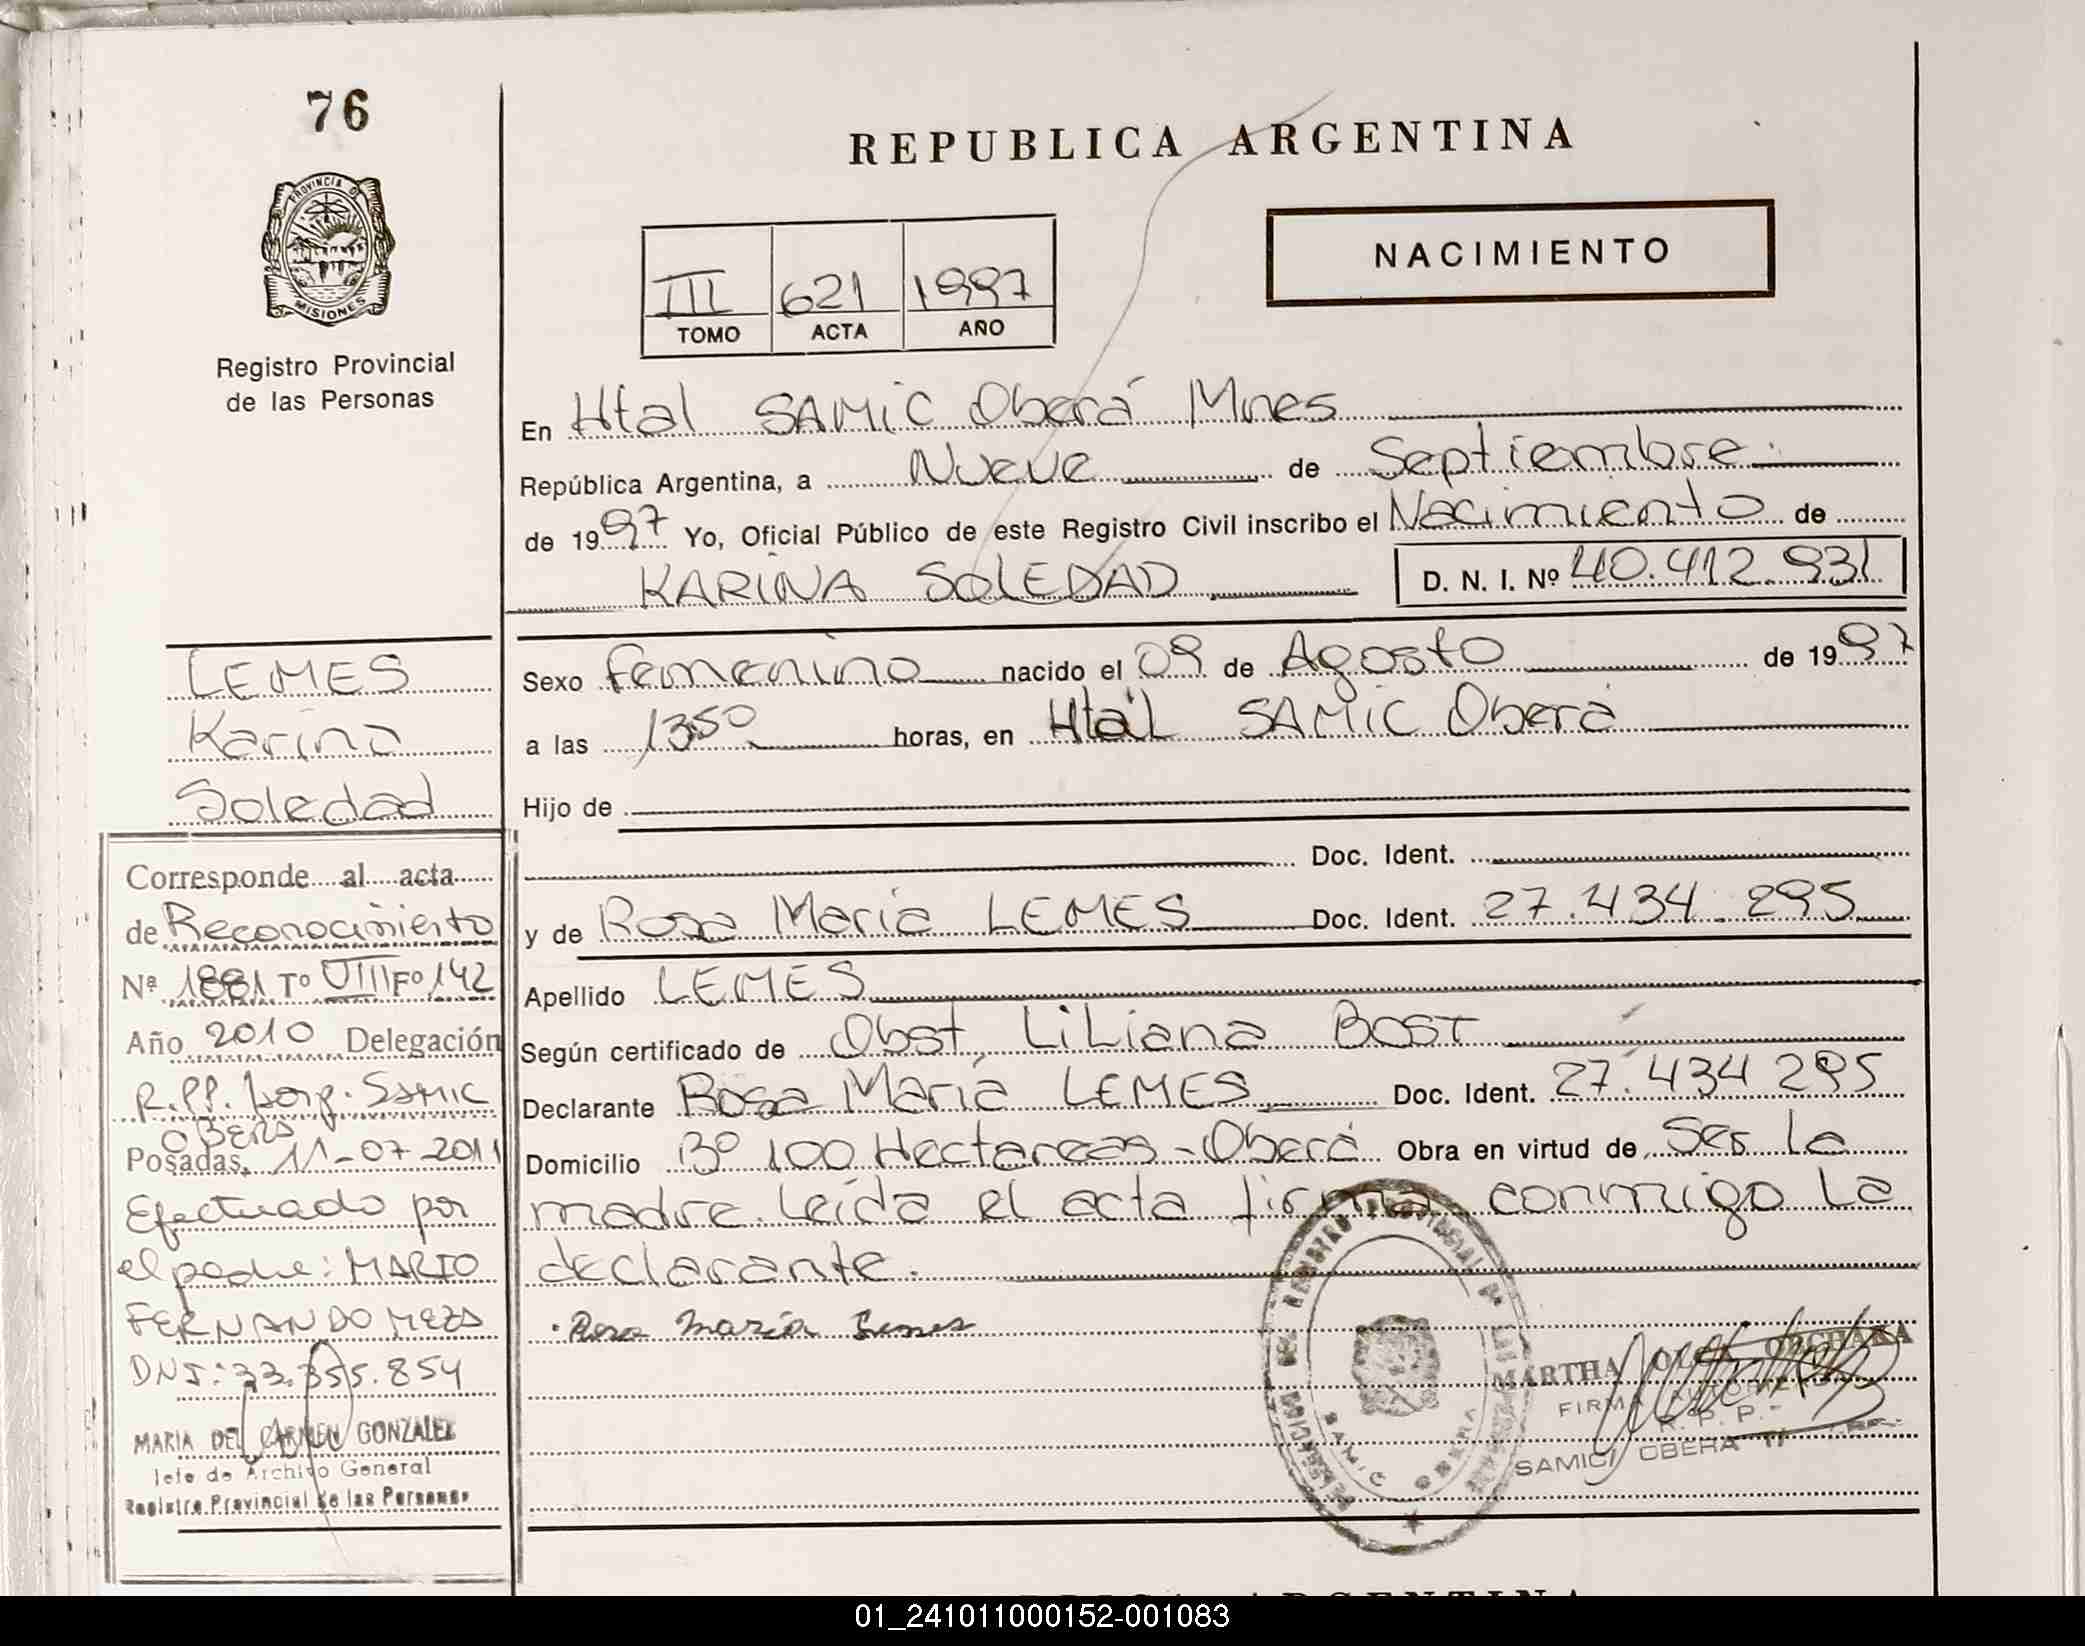 76
REPUBLICA ARGENTINA
PROVINCIA D
MISIONES
Registro Provincial
de las Personas
NACIMIENTO
III 621 1997
TOMO ACTA AÑO
En Htal SAMIC Oberá Mnes
República Argentina, a Nueve de Septiembre
de 1997 Yo, Oficial Público de este Registro Civil inscribo el Nacimiento de
KARINA SOLEDAD D. N. I. Nº 40.412.931
LEMES
Karina
Soledad
Sexo femenino nacido el 09 de Agosto de 1997
a las 1350 horas, en Htal SAMIC Oberá
Hijo de
Doc. Ident.
y de Rosa María LEMES Doc. Ident. 27.434.295
Apellido LEMES
Según certificado de Obst, LiLiana BOST
Declarante Rosa María LEMES Doc. Ident. 27.434 295
Domicilio Bº 100 Hectareas - Oberá Obra en virtud de Ser la
madre. Leída el acta firma conmigo la
declarante.
Rosa María Lemes
Corresponde al acta
de Reconocimiento
Nº 1881 Tº VIII Fº 142
Año 2010 Delegación
R.PP. Hosp. SAMIC
OBERA
Posadas, 11-07-2011
Efectuado por
el padre: MARIO
FERNANDO MEZA
DNI: 33.355.854
MARIA DEL CARMEN GONZALEZ
Jefe de Archivo General
Registro Provincial de las Personas
SAMIC OBERA
MARTHA OLGA
FIRMA AUTORIZADA
R. P. P.-
SAMIC OBERA
REPUBLICA ARGENTINA
01_241011000152-001083